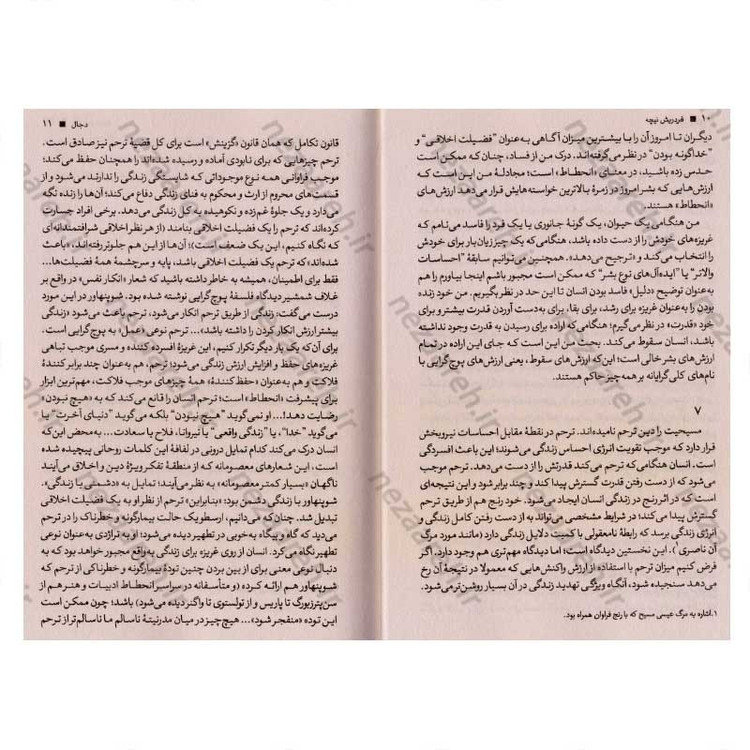 ۱۰ ■ فردریش نیچه
دیگران تا امروز آن را با بیشترین میزان آگاهی به‌عنوان "فضیلت اخلاقی" و
"خداگونه بودن" در نظر می‌گرفته‌اند. درک من از فساد، چنان که ممکن است
حدس زده باشید، در معنای «انحطاط» است؛ مجادلهٔ من این است که
ارزش‌هایی که بشر امروز در زمرهٔ بالاترین خواسته‌هایش قرار می‌دهد ارزش‌های
«انحطاط» هستند.
من هنگامی یک حیوان، یک گونهٔ جانوری یا یک فرد را فاسد می‌نامم که
غریزه‌های خودش را از دست داده باشد، هنگامی که یک چیز زیان‌بار برای خودش
را انتخاب می‌کند و «ترجیح می‌دهد». همچنین می‌توانیم سابقهٔ "احساسات
والاتر" یا "ایده‌آل‌های نوع بشر" که ممکن است مجبور باشم اینجا بیاورم را هم
به‌عنوان توضیح «دلیل» فاسد بودن انسان تا این حد در نظر بگیریم. من خود زنده
بودن را به‌عنوان غریزه برای رشد، برای بقا، برای به‌دست آوردن قدرت بیشتر و برای
خود «قدرت» در نظر می‌گیرم؛ هنگامی که اراده برای رسیدن به قدرت وجود نداشته
باشد، انسان سقوط می‌کند. بحث من این است که جای این اراده در تمام
ارزش‌های بشر خالی است؛ این که ارزش‌های سقوط، یعنی ارزش‌های پوچ‌گرایی با
نام‌های کلی‌گرایانه بر همه چیز حاکم هستند.
۷
مسیحیت را دین ترحم نامیده‌اند. ترحم در نقطهٔ مقابل احساسات نیروبخش
قرار دارد که موجب تقویت انرژی احساس زندگی می‌شوند؛ این باعث افسردگی
است. انسان هنگامی که ترحم می‌کند قدرتش را از دست می‌دهد. ترحم موجب
می‌شود که از دست رفتن قدرت گسترش پیدا کند و چند برابر شود و این نتیجه‌ای
است که در اثر رنج در زندگی انسان ایجاد می‌شود. خود رنج هم از طریق ترحم
گسترش پیدا می‌کند؛ در شرایط مشخصی می‌تواند به از دست رفتن کامل زندگی و
انرژی زندگی برسد که رابطهٔ نامعقولی با کمیت دلایل زندگی دارد (مانند مورد مرگ
آن ناصری¹). این نخستین دیدگاه است؛ اما دیدگاه مهم‌تری هم وجود دارد. اگر
فرض کنیم میزان ترحم با استفاده از ارزش واکنش‌هایی که معمولا در نتیجهٔ آن رخ
می‌دهد سنجیده شود، آنگاه ویژگی تهدید زندگی در آن بسیار روشن‌تر می‌شود.
۱. اشاره به مرگ عیسی مسیح که با رنج فراوان همراه بود.
دجال ■ ۱۱
قانون تکامل که همان قانون «گزینش» است برای کل قضیهٔ ترحم نیز صادق است.
ترحم چیزهایی که برای نابودی آماده و رسیده شده‌اند را همچنان حفظ می‌کند؛
موجب فراوانی همه نوع موجوداتی که شایستگی زندگی را ندارند می‌شود و از
قسمت‌های محروم از ارث و محکوم به فنای زندگی دفاع می‌کند؛ آن‌ها را زنده نگه
می‌دارد و یک جلوهٔ غم‌زده و نکوهیده به کل زندگی می‌دهد. برخی افراد جسارت
کرده‌اند که ترحم را یک فضیلت اخلاقی بنامند (از هر نظر اخلاقی شرافتمندانه‌ای
که نگاه کنیم، این یک ضعف است)؛ آن‌ها از این هم جلوتر رفته‌اند، «باعث
شده‌اند» که ترحم یک فضیلت اخلاقی باشد، پایه و سرچشمهٔ همهٔ فضیلت‌ها...
فقط برای اطمینان، همیشه به خاطر داشته باشید که شعار «انکار نفس» در واقع بر
غلاف شمشیر دیدگاه فلسفهٔ پوچ‌گرایی نوشته شده بود. شوپنهاور در این مورد
درست می‌گفت: زندگی از طریق ترحم انکار می‌شود، ترحم باعث می‌شود «زندگی
بیشتر ارزش انکار کردن را داشته باشد»... ترحم نوعی «عمل» به پوچ‌گرایی است.
برای آن که یک بار دیگر تکرار کنیم، این غریزهٔ افسرده کننده و مسری موجب تباهی
غریزه‌های حفظ و افزایش ارزش زندگی می‌شود؛ ترحم، هم به‌عنوان چند برابر کنندهٔ
فلاکت و هم به‌عنوان «حفظ کنندهٔ» همهٔ چیزهای موجب فلاکت، مهم‌ترین ابزار
برای پیشرفت «انحطاط» است؛ ترحم انسان را قانع می‌کند که به «هیچ نبودن»
رضایت دهد!... او نمی‌گوید "هیچ نبودن" بلکه می‌گوید "دنیای آخرت" یا
می‌گوید "خدا"، یا "زندگی واقعی" یا نیروانا، فلاح یا سعادت... به‌محض این که
انسان درک می‌کند کدام تمایل درونی در لفافهٔ این کلمات روحانی پیچیده شده
است، این شعارهای معصومانه که از منطقهٔ تفکر ویژهٔ دین و اخلاق می‌آیند
ناگهان «بسیار کمتر معصومانه» به نظر می‌آیند؛ تمایل به «دشمنی با زندگی».
شوپنهاور با زندگی دشمن بود؛ بنابراین» ترحم از نظر او به یک فضیلت اخلاقی
تبدیل شد. چنان که می‌دانیم، ارسطو یک حالت بیمارگونه و خطرناک را در ترحم
می‌دید که گاه و بیگاه به‌خوبی در تطهیر دیده می‌شود؛ او به تراژدی به‌عنوان نوعی
تطهیر نگاه می‌کرد. انسان از روی غریزه برای زندگی به‌واقع مجبور خواهد بود که به
دنبال نوعی معنی برای از بین بردن چنین تودهٔ بیمارگونه و خطرناکی از ترحم که
شوپنهاور هم ارائه کرده (و متأسفانه در سراسر انحطاط ادبیات و هنر هم از
سن‌پترزبورگ تا پاریس و از تولستوی تا واگنر دیده می‌شود) باشد؛ چون ممکن است
این توده «منفجر شود»... هیچ چیز در میان مدرنیتهٔ ناسالم ما ناسالم‌تر از ترحم
nezaafeh.ir